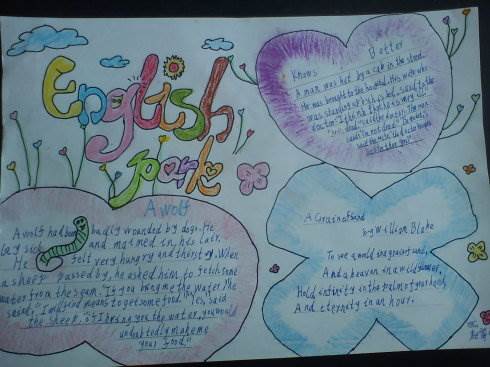 English
park
Knows Better
A man was hit by a car in the street.
He was brought to the hospital. His wife who
was standing by his bed, said to the
doctor: "I think that he is my
"yes, dead," said the doctor. The man
said: "I'm not dead".
said the nurse. The doctor knows
better than you!"
A wolf
A wolf had been badly wounded by dogs. He
lay sick and maimed in his lair.
He felt very hungry and thirsty. When
a sheep passed by, he asked him to fetch some
water from the steam. "If you bring me the water," he
said, "I will find means to get some food." "Yes, said
the sheep, "if I bring you the water, you would
undoubtedly make me
your food."
A Grain of Sand
By William Blake
To see a world in a grain of sand,
And a heaven in a wild flower,
Hold infinity in the palm of your hand,
And eternity in an hour.